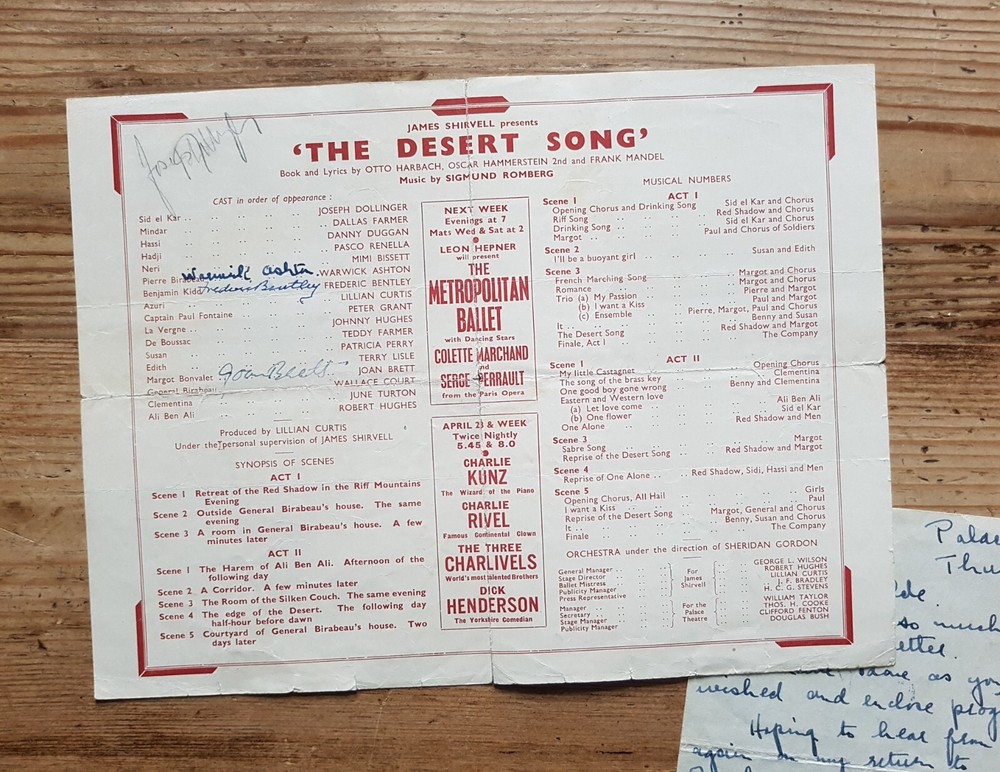 Joseph Dollinger
JAMES SHIRVELL presents
‘THE DESERT SONG’
Book and Lyrics by OTTO HARBACH, OSCAR HAMMERSTEIN 2nd and FRANK MANDEL
Music by SIGMUND ROMBERG
CAST in order of appearance :
Sid el Kar .. JOSEPH DOLLINGER
Mindar DALLAS FARMER
Hassi DANNY DUGGAN
Hadji PASCO RENELLA
Neri MIMI BISSETT
Pierre Birabeau Warwick Ashton WARWICK ASHTON
Benjamin Kidd Frederic Bentley FREDERIC BENTLEY
Azuri LILLIAN CURTIS
Captain Paul Fontaine PETER GRANT
La Vergne .. JOHNNY HUGHES
De Boussac TEDDY FARMER
Susan PATRICIA PERRY
Edith TERRY LISLE
Margot Bonvalet Joan Brett JOAN BRETT
General Birabeau WALLACE COURT
Clementina JUNE TURTON
Ali Ben Ali ROBERT HUGHES
Produced by LILLIAN CURTIS
Under the personal supervision of JAMES SHIRVELL
SYNOPSIS OF SCENES
ACT I
Scene 1 Retreat of the Red Shadow in the Riff Mountains
Evening
Scene 2 Outside General Birabeau's house. The same
evening
Scene 3 A room in General Birabeau's house. A few
minutes later
ACT II
Scene 1 The Harem of Ali Ben Ali. Afternoon of the
following day
Scene 2 A Corridor. A few minutes later
Scene 3 The Room of the Silken Couch. The same evening
Scene 4 The edge of the Desert. The following day
half-hour before dawn
Scene 5 Courtyard of General Birabeau's house. Two
days later
NEXT WEEK
Evenings at 7
Mats Wed & Sat at 2
LEON HEPNER
will present
THE
METROPOLITAN
BALLET
with Dancing Stars
COLETTE MARCHAND
and
SERGE PERRAULT
from the Paris Opera
APRIL 23 & WEEK
Twice Nightly
5.45 & 8.0
CHARLIE
KUNZ
The Wizard of the Piano
CHARLIE
RIVEL
Famous Continental Clown
THE THREE
CHARLIVELS
World's most talented Brothers
DICK
HENDERSON
The Yorkshire Comedian
MUSICAL NUMBERS
ACT I
Scene 1
Opening Chorus and Drinking Song Sid el Kar and Chorus
Riff Song Red Shadow and Chorus
Drinking Song Sid el Kar and Chorus
Margot .. Paul and Chorus of Soldiers
Scene 2
I'll be a buoyant girl Susan and Edith
Scene 3
French Marching Song Margot and Chorus
Romance Margot and Chorus
Trio (a) My Passion Pierre and Margot
(b) I want a Kiss Paul and Margot
(c) Ensemble Pierre, Margot, Paul and Chorus
It .. Benny and Susan
The Desert Song Red Shadow and Margot
Finale, Act I The Company
ACT II
Scene 1 Opening Chorus
My little Castagnet Clementina
The song of the brass key Benny and Clementina
One good boy gone wrong
Eastern and Western love
(a) Let love come Ali Ben Ali
(b) One flower Sid el Kar
One Alone Red Shadow and Men
Scene 3
Sabre Song Margot
Reprise of the Desert Song Red Shadow and Margot
Scene 4
Reprise of One Alone .. Red Shadow, Sidi, Hassi and Men
Scene 5
Opening Chorus, All Hail Girls
I want a Kiss Paul
Reprise of the Desert Song Margot, General and Chorus
It .. Benny, Susan and Chorus
Finale The Company
ORCHESTRA under the direction of SHERIDAN GORDON
General Manager GEORGE L. WILSON
Stage Director ROBERT HUGHES
Ballet Mistress For James Shirvell LILLIAN CURTIS
Publicity Manager J. F. BRADLEY
Press Representative H. C. G. STEVENS
Manager WILLIAM TAYLOR
Secretary For the Palace Theatre THOS. H. COOKE
Stage Manager CLIFFORD FENTON
Publicity Manager DOUGLAS BUSH
so much
wished and enclose prog
Hoping to hear from
again on my return to